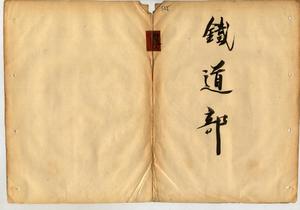 鐵道部